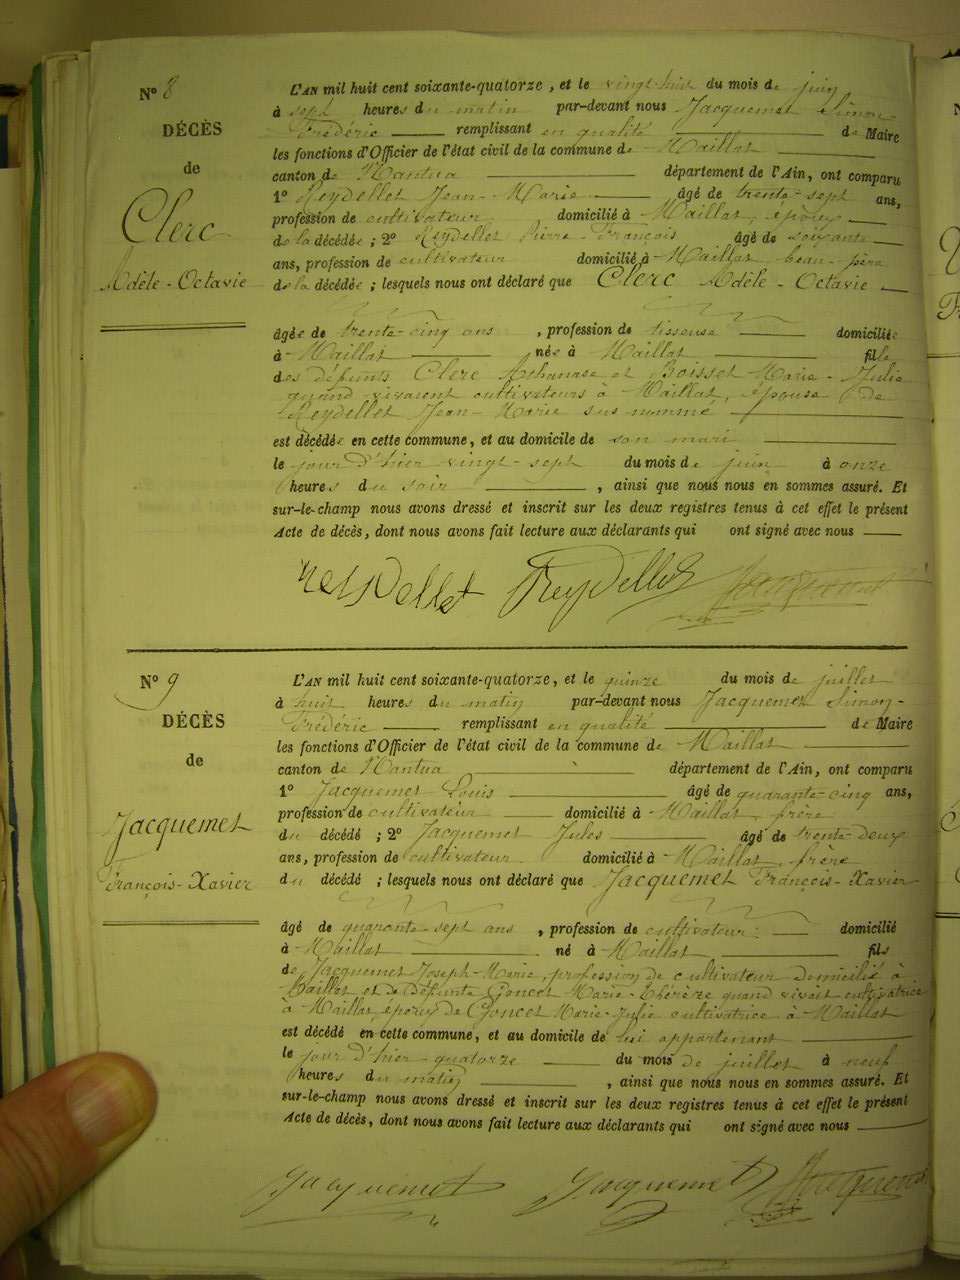 N° 8
DÉCÈS
de
Clerc
Adèle-Octavie
L'AN mil huit cent soixante-quatorze, et le vingt-huit du mois de juin
à sept heures du matin par-devant nous Jacquemet Simon
Frédéric remplissant en qualité de Maire
les fonctions d'Officier de l'état civil de la commune de Maillat
canton de Nantua département de l'Ain, ont comparu
1° Reydellet Jean-Marie âgé de trente-sept ans,
profession de cultivateur domicilié à Maillat, époux
de la décédée ; 2° Reydellet Pierre-François âgé de soixante
ans, profession de cultivateur domicilié à Maillat beau-père
de la décédée ; lesquels nous ont déclaré que Clerc Adèle-Octavie
âgée de trente-cinq ans, profession de tisseuse domiciliée
à Maillat née à Maillat fille
des défunts Clerc Athanase et Boisset Marie-Julie
quand vivaient cultivateurs à Maillat, épouse de
Reydellet Jean-Marie sus nommé
est décédée en cette commune, et au domicile de son mari
le jour d'hier vingt-sept du mois de juin à onze
heures du soir, ainsi que nous nous en sommes assuré. Et
sur-le-champ nous avons dressé et inscrit sur les deux registres tenus à cet effet le présent
Acte de décès, dont nous avons fait lecture aux déclarants qui ont signé avec nous
reydellet Reydellet Jacquemet
N° 9
DÉCÈS
de
Jacquemet
François-Xavier
L'AN mil huit cent soixante-quatorze, et le quinze du mois de juillet
à huit heures du matin par-devant nous Jacquemet Simon-
Frédéric remplissant en qualité de Maire
les fonctions d'Officier de l'état civil de la commune de Maillat
canton de Nantua département de l'Ain, ont comparu
1° Jacquemet Louis âgé de quarante-cinq ans,
profession de cultivateur domicilié à Maillat, frère
du décédé ; 2° Jacquemet Jules âgé de trente-deux
ans, profession de cultivateur domicilié à Maillat, frère
du décédé ; lesquels nous ont déclaré que Jacquemet François-Xavier
âgé de quarante-sept ans, profession de cultivateur domicilié
à Maillat né à Maillat fils
de Jacquemet Joseph-Marie, profession de cultivateur domicilié à
Maillat et de défunte Goncet Marie-Thérèze quand vivait cultivatrice
à Maillat, époux de Goncet Marie-Julie cultivatrice à Maillat
est décédé en cette commune, et au domicile de lui appartenant
le jour d'hier quatorze du mois de juillet à neuf
heures du matin, ainsi que nous nous en sommes assuré. Et
sur-le-champ nous avons dressé et inscrit sur les deux registres tenus à cet effet le présent
Acte de décès, dont nous avons fait lecture aux déclarants qui ont signé avec nous
Jacquemet Jacquemet Jacquemet